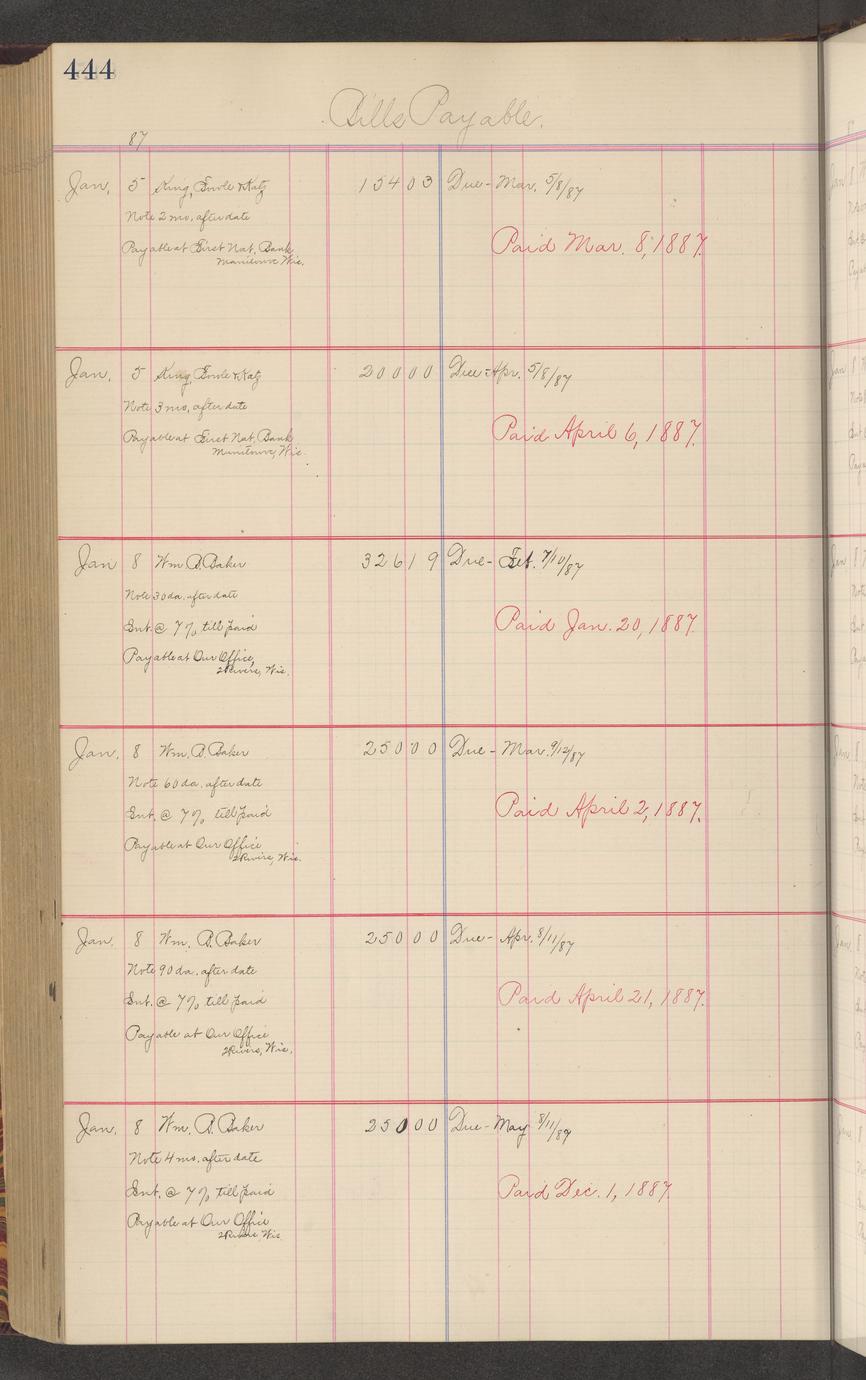 444
Bills Payable.
87
Jan. 5 King, Fowle & Katz 154 03 Due - Mar. 5/8/87
Note 2 mo. after date
Payable at First Nat. Bank Paid Mar. 8, 1887.
Manitowoc Wis.
Jan. 5 King Fowle & Katz 200 00 Due - Apr. 5/8/87
Note 3 mo. after date
Payable at First Nat. Bank Paid April 6, 1887.
Manitowoc, Wis.
Jan 8 Wm. B. Baker 326 19 Due - Feb. 7/10/87
Note 30 da. after date
Int. @ 7% till paid Paid Jan. 20, 1887.
Payable at Our Office,
2 Rivers, Wis.
Jan. 8 Wm. B. Baker 250 00 Due - Mar. 9/12/87
Note 60 da. after date
Int. @ 7% till paid Paid April 2, 1887.
Payable at Our Office
2 Rivers, Wis.
Jan. 8 Wm. B. Baker 250 00 Due - Apr. 8/11/87
Note 90 da. after date
Int. @ 7% till paid Paid April 21, 1887.
Payable at Our Office
2 Rivers, Wis.
Jan. 8 Wm. B. Baker 250 00 Due - May 8/11/87
Note 4 mo. after date
Int. @ 7% till paid Paid Dec. 1, 1887.
Payable at Our Office
2 Rivers, Wis.